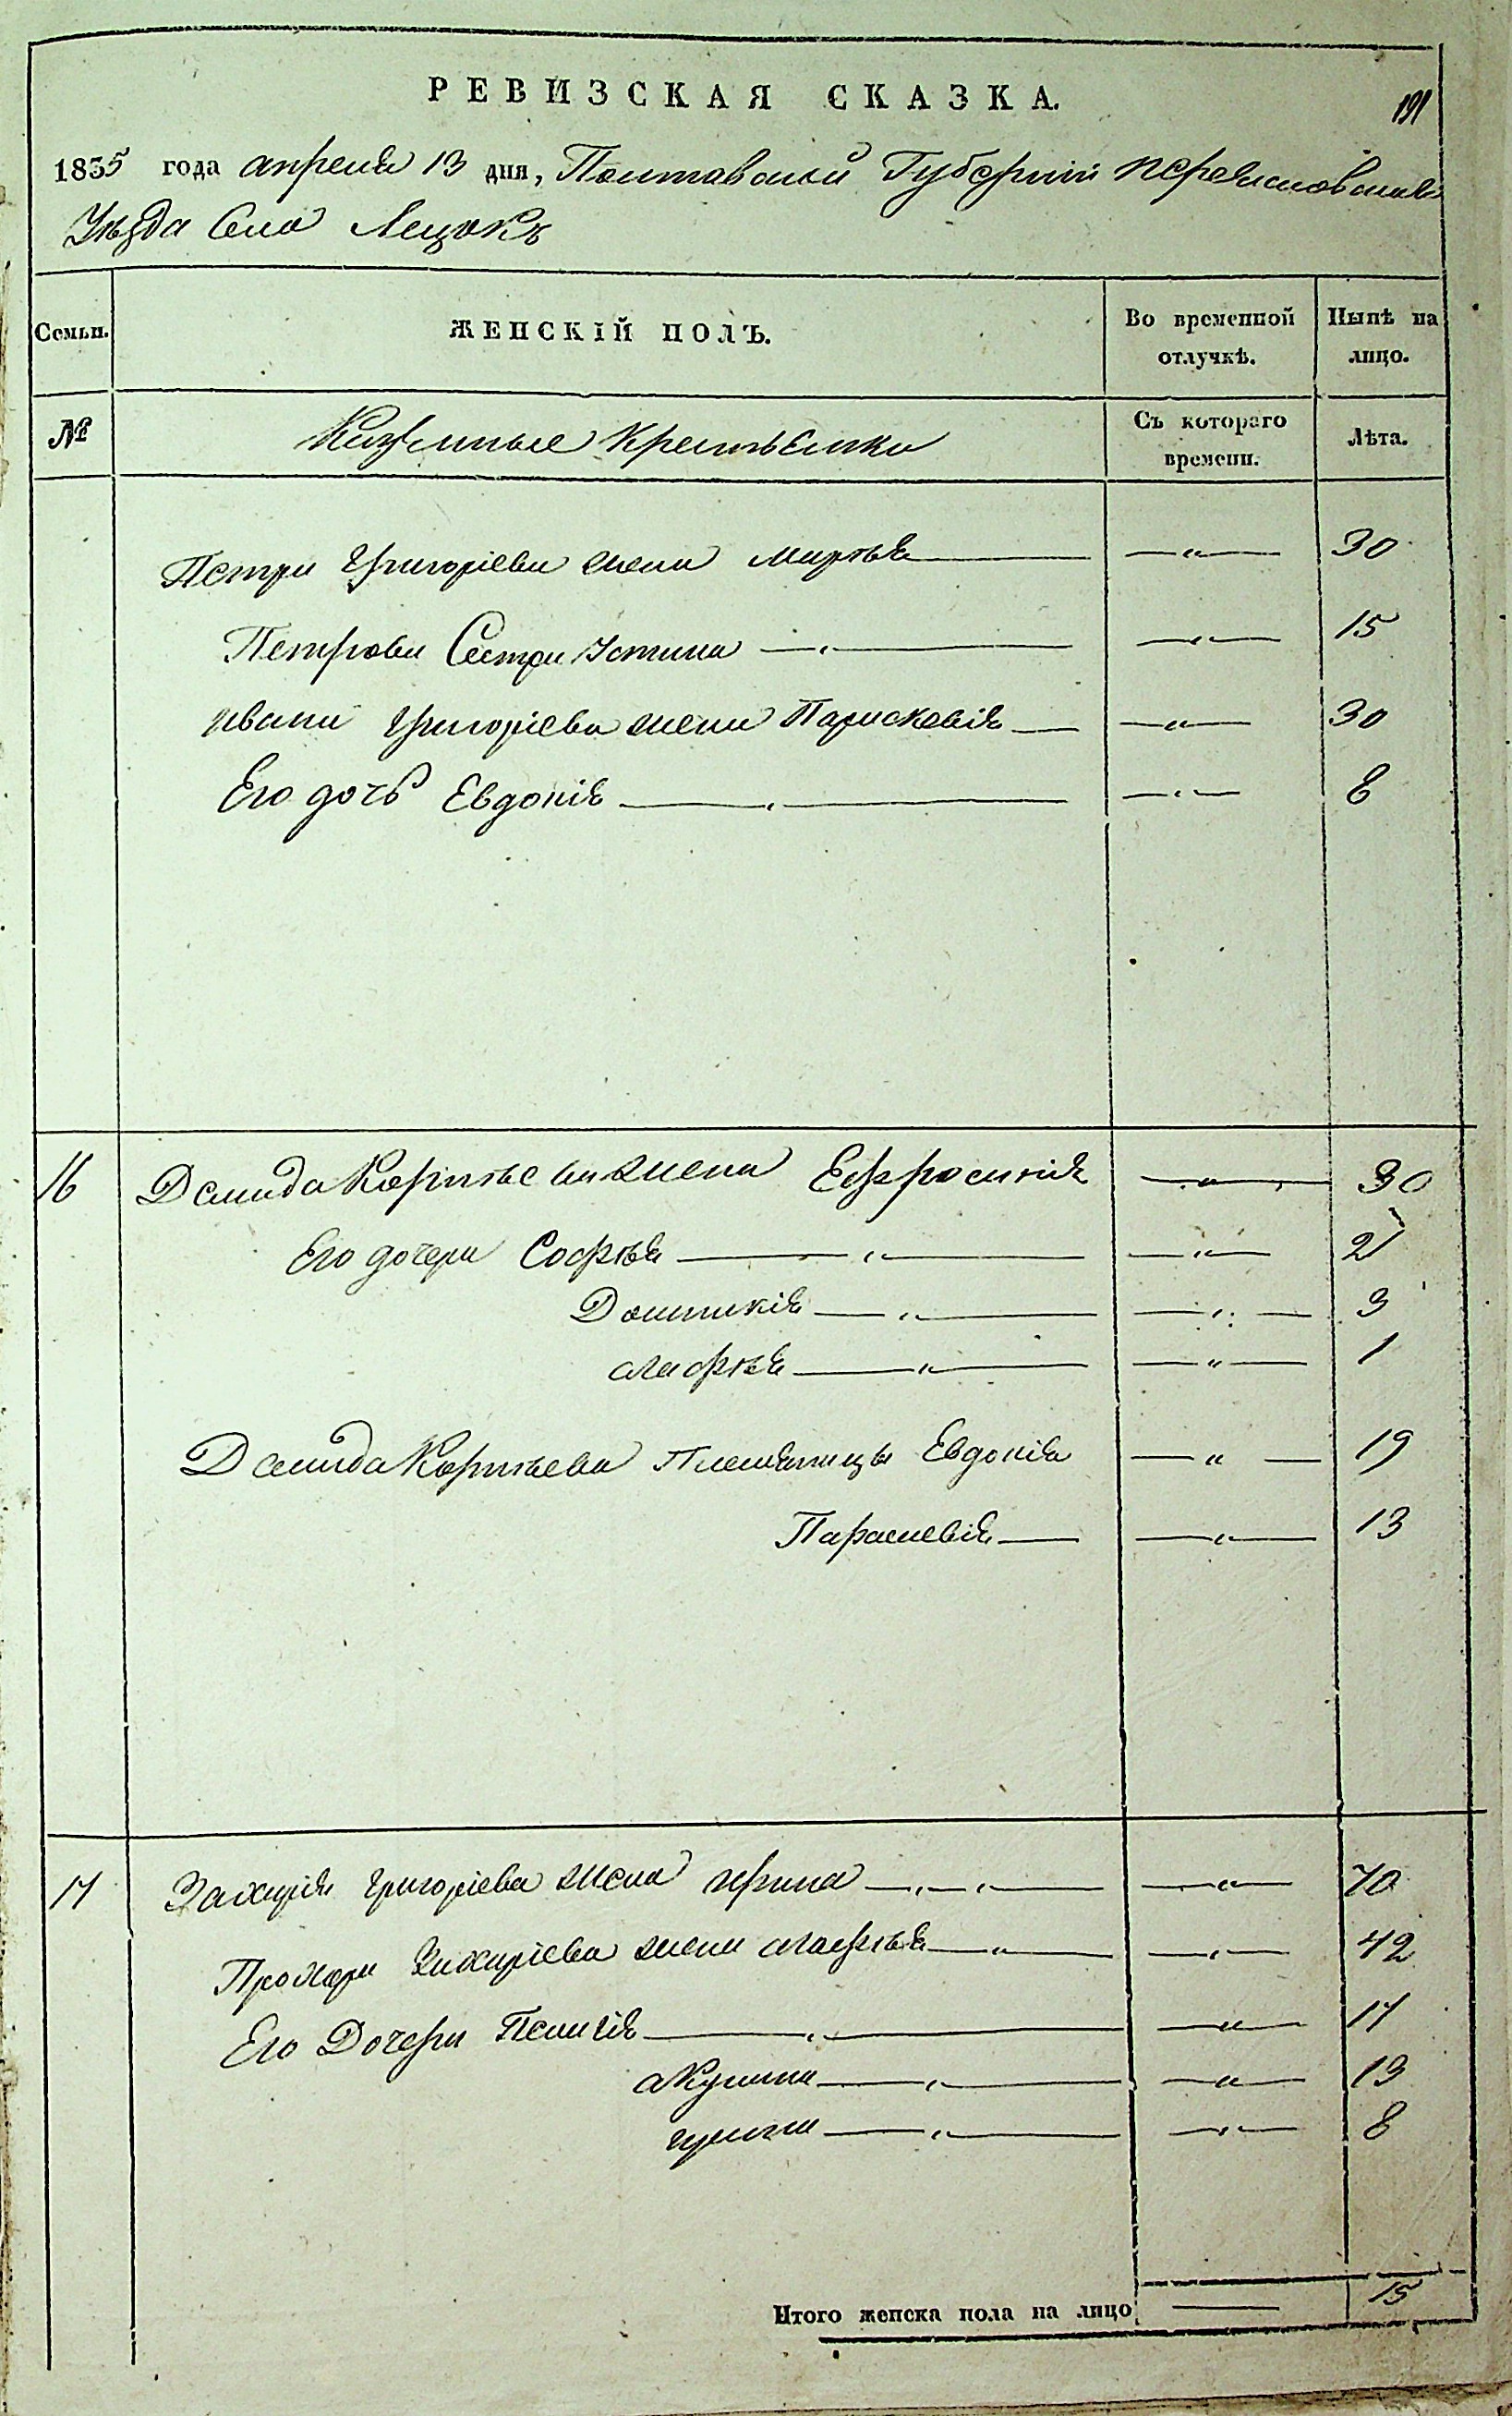 РЕВИЗСКАЯ СКАЗКА.
191
1835 года апреля 13 дня, Полтавской Губернии Переяславскаго
Уѣзда Села Лецокъ
Семьи.
ЖЕНСКІЙ ПОЛЪ.
Во временной отлучкѣ.
Нынѣ на лицо.
№
Казенные Крестьенки
Съ котораго времени.
Лѣта.
Петра Григоріева жена Марѳья — „ — 30
Петрова Сестра Устина — „ — „ — 15
Ивана Григоріева жена Парасковія — „ — 30
Его дочь Евдокія — „ — „ — 8
16 Демида Корнѣева жена Ефросинія — „ — 30
Его дочери Софья — „ — „ — 21
Домникія — „ — „ — 3
Агафья — „ — „ — 1
Демида Корнѣева Племяницы Евдокія — „ — 19
Параскевія — „ — 13
17 Захарія Григоріева жена Ирина — „ — „ — 70
Прохора Захаріева жена Агафья — „ — „ — 42
Его Дочери Пелагія — „ — „ — 17
Акулина — „ — „ — 13
— „ — „ — 8
Итого женска пола на лицо — 15